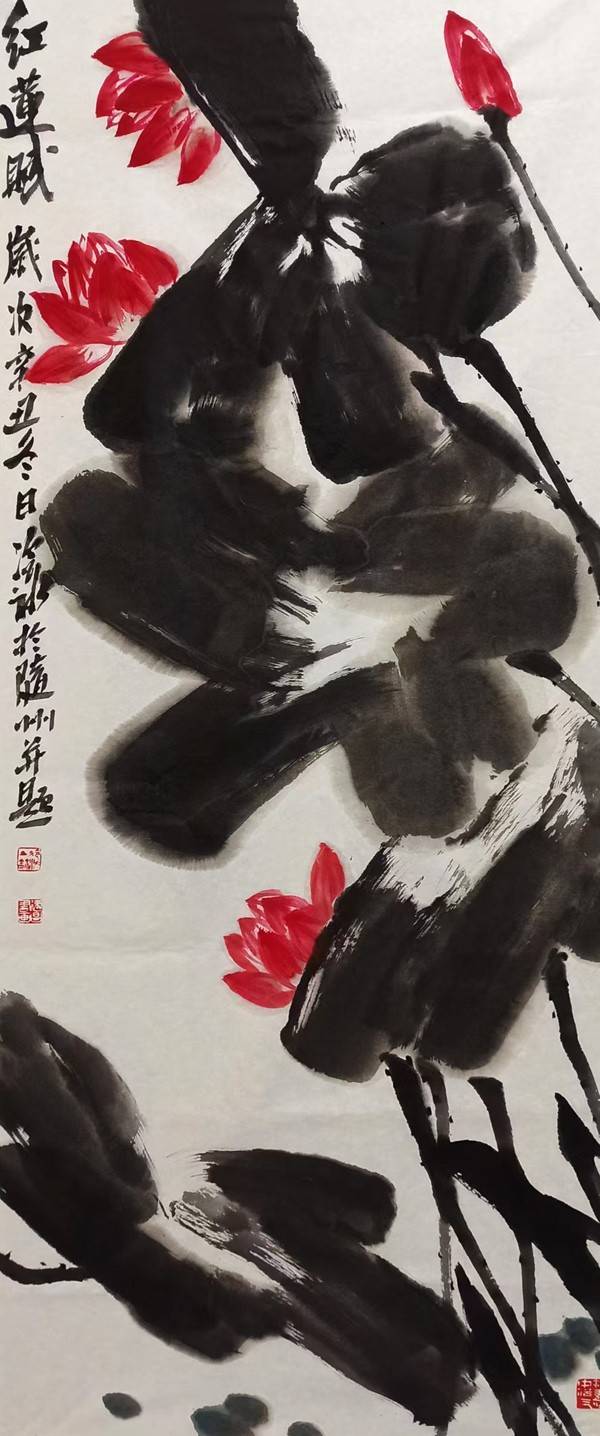 紅蓮賦 歲次辛丑冬日泳於隨州并題